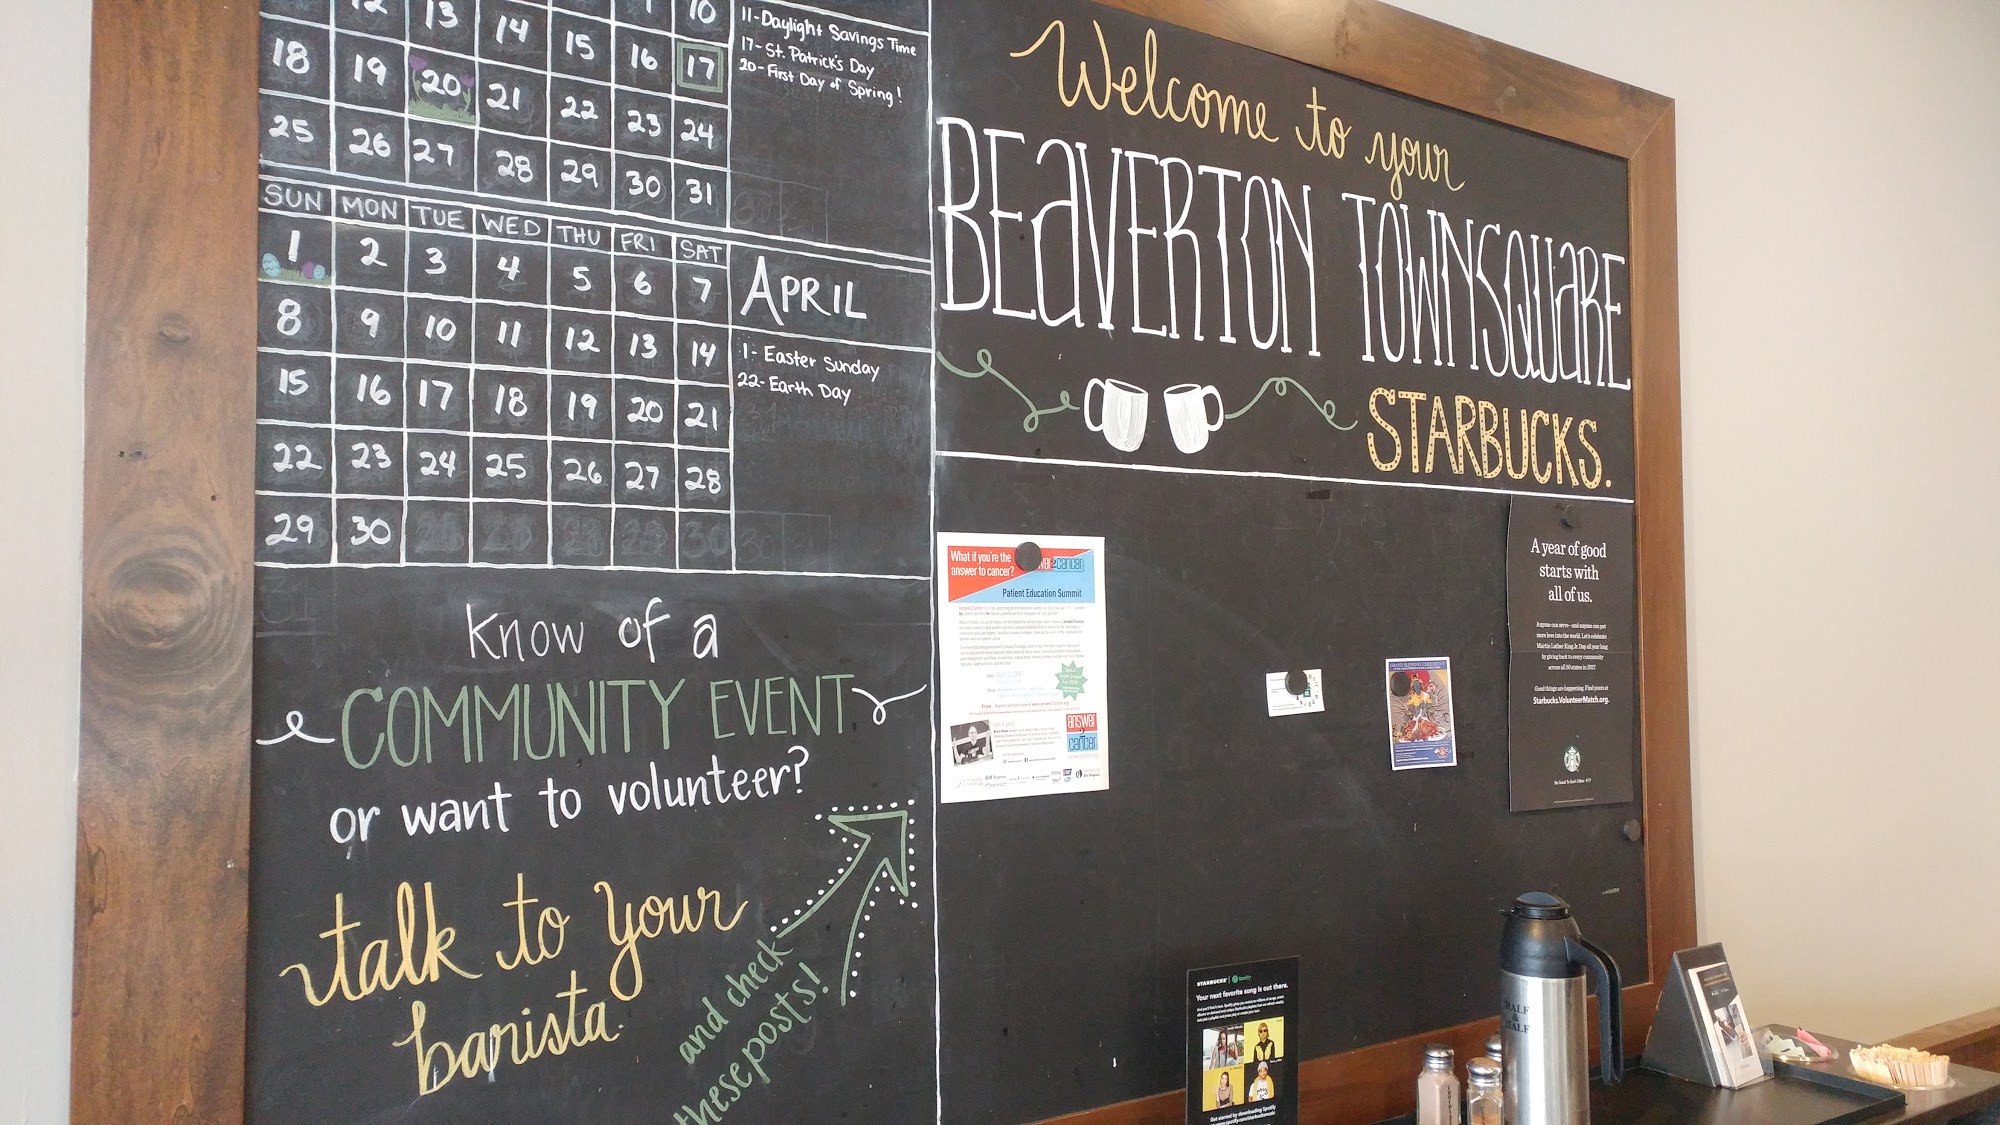 12 13 14 15 16 17
18 19 20 21 22 23 24
25 26 27 28 29 30 31
11-Daylight Savings Time
17-St. Patrick's Day
20-First Day of Spring!
SUN MON TUE WED THU FRI SAT
1 2 3 4 5 6 7
8 9 10 11 12 13 14
15 16 17 18 19 20 21
22 23 24 25 26 27 28
29 30
APRIL
1- Easter Sunday
22- Earth Day
Know of a
COMMUNITY EVENT
or want to volunteer?
talk to your
barista.
and check
these posts!
Welcome to your
BEAVERTON TOWNSQUARE
STARBUCKS.
What if you're the
answer to cancer?
Patient Education Summit
answer
2
cancer
A year of good
starts with
all of us.
Anyone can serve—and anyone can get
more love into the world. Let's celebrate
Martin Luther King Jr. Day all year long
by giving back to every community
across all 50 states in 2017.
Good things are happening. Find yours at
Starbucks.VolunteerMatch.org.
STARBUCKS | Spotify
Your next favorite song is out there.
Get started by downloading Spotify
HALF
&
HALF